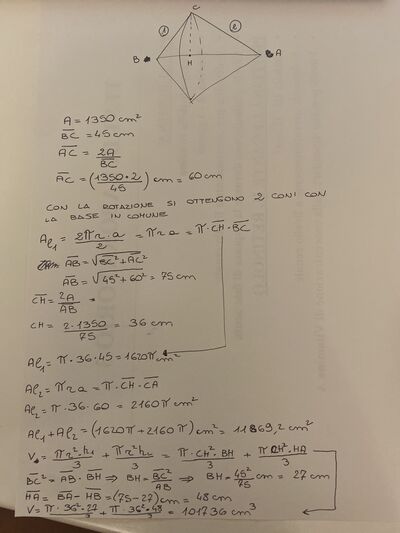 C
① ②
B H A
A = 1350 cm²
BC = 45 cm
AC = 2A / BC
AC = (1350·2 / 45) cm = 60 cm
CON LA ROTAZIONE SI OTTENGONO 2 CONI CON
LA BASE IN COMUNE
Al₁ = 2πr·a / 2 = πra = π·CH·BC
AB = √BC²+AC²
AB = √45²+60² = 75 cm
CH = 2A / AB =
CH = 2·1350 / 75 = 36 cm
Al₁ = π·36·45 = 1620π cm²
Al₂ = πra = π·CH·CA
Al₂ = π·36·60 = 2160π cm²
Al₁+Al₂ = (1620π+2160π) cm² = 11869,2 cm²
V = πr²·h₁ / 3 + πr²h₂ / 3 = π·CH²·BH / 3 + πCH²·HA / 3
BC² = AB·BH ⇒ BH = BC² / AB ⇒ BH = 45² / 75 cm = 27 cm
HA = BA - HB = (75-27) cm = 48 cm
V = π·36²·27 / 3 + π·36²·48 / 3 = 101736 cm³